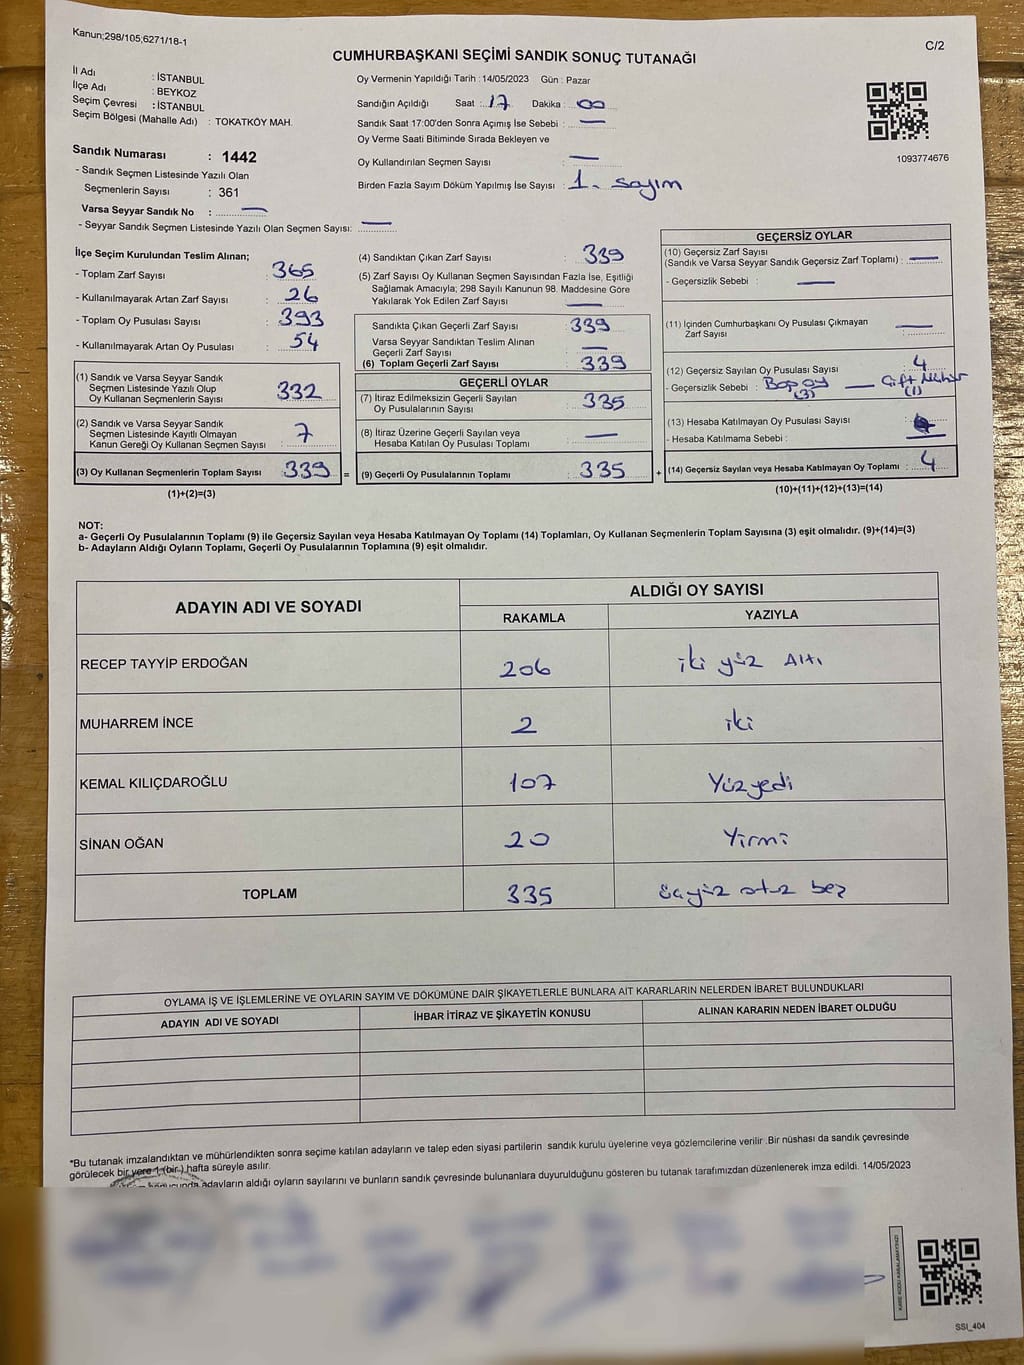 Kanun;298/105;6271/18-1
C/2
CUMHURBAŞKANI SEÇİMİ SANDIK SONUÇ TUTANAĞI
İl Adı : İSTANBUL
İlçe Adı : BEYKOZ
Seçim Çevresi : İSTANBUL
Seçim Bölgesi (Mahalle Adı) : TOKATKÖY MAH.
Sandık Numarası : 1442
- Sandık Seçmen Listesinde Yazılı Olan
Seçmenlerin Sayısı : 361
Varsa Seyyar Sandık No : —
- Seyyar Sandık Seçmen Listesinde Yazılı Olan Seçmen Sayısı: —
Oy Vermenin Yapıldığı Tarih : 14/05/2023 Gün : Pazar
Sandığın Açıldığı Saat : 17 Dakika : 00
Sandık Saat 17:00'den Sonra Açımış İse Sebebi : —
Oy Verme Saati Bitiminde Sırada Bekleyen ve
Oy Kullandırılan Seçmen Sayısı : —
Birden Fazla Sayım Döküm Yapılmış İse Sayısı : 1. sayım
1093774676
İlçe Seçim Kurulundan Teslim Alınan;
- Toplam Zarf Sayısı : 365
- Kullanılmayarak Artan Zarf Sayısı : 26
- Toplam Oy Pusulası Sayısı : 393
- Kullanılmayarak Artan Oy Pusulası : 54
(1) Sandık ve Varsa Seyyar Sandık
Seçmen Listesinde Yazılı Olup
Oy Kullanan Seçmenlerin Sayısı : 332
(2) Sandık ve Varsa Seyyar Sandık
Seçmen Listesinde Kayıtlı Olmayan
Kanun Gereği Oy Kullanan Seçmen Sayısı : 7
(3) Oy Kullanan Seçmenlerin Toplam Sayısı : 339 =
(1)+(2)=(3)
(4) Sandıktan Çıkan Zarf Sayısı : 339
(5) Zarf Sayısı Oy Kullanan Seçmen Sayısından Fazla İse, Eşitliği
Sağlamak Amacıyla; 298 Sayılı Kanunun 98. Maddesine Göre
Yakılarak Yok Edilen Zarf Sayısı : —
Sandıkta Çıkan Geçerli Zarf Sayısı : 339
Varsa Seyyar Sandıktan Teslim Alınan
Geçerli Zarf Sayısı : —
(6) Toplam Geçerli Zarf Sayısı : 339
GEÇERLİ OYLAR
(7) İtiraz Edilmeksizin Geçerli Sayılan
Oy Pusulalarının Sayısı : 335
(8) İtiraz Üzerine Geçerli Sayılan veya
Hesaba Katılan Oy Pusulası Toplamı : —
(9) Geçerli Oy Pusulalarının Toplamı : 335 +
GEÇERSİZ OYLAR
(10) Geçersiz Zarf Sayısı
(Sandık ve Varsa Seyyar Sandık Geçersiz Zarf Toplamı) : —
- Geçersizlik Sebebi : —
(11) İçinden Cumhurbaşkanı Oy Pusulası Çıkmayan
Zarf Sayısı : —
(12) Geçersiz Sayılan Oy Pusulası Sayısı : 4
- Geçersizlik Sebebi : Boş oy — Çift Mühür
(3) (1)
(13) Hesaba Katılmayan Oy Pusulası Sayısı :
- Hesaba Katılmama Sebebi : —
(14) Geçersiz Sayılan veya Hesaba Katılmayan Oy Toplamı : 4
(10)+(11)+(12)+(13)=(14)
NOT:
a- Geçerli Oy Pusulalarının Toplamı (9) ile Geçersiz Sayılan veya Hesaba Katılmayan Oy Toplamı (14) Toplamları, Oy Kullanan Seçmenlerin Toplam Sayısına (3) eşit olmalıdır. (9)+(14)=(3)
b- Adayların Aldığı Oyların Toplamı, Geçerli Oy Pusulalarının Toplamına (9) eşit olmalıdır.
ADAYIN ADI VE SOYADI ALDIĞI OY SAYISI
RAKAMLA YAZIYLA
RECEP TAYYİP ERDOĞAN 206 iki yüz Altı
MUHARREM İNCE 2 iki
KEMAL KILIÇDAROĞLU 107 Yüzyedi
SİNAN OĞAN 20 Yirmi
TOPLAM 335 üçyüz otuz beş
OYLAMA İŞ VE İŞLEMLERİNE VE OYLARIN SAYIM VE DÖKÜMÜNE DAİR ŞİKAYETLERLE BUNLARA AİT KARARLARIN NELERDEN İBARET BULUNDUKLARI
ADAYIN ADI VE SOYADI İHBAR İTİRAZ VE ŞİKAYETİN KONUSU ALINAN KARARIN NEDEN İBARET OLDUĞU
*Bu tutanak imzalandıktan ve mühürlendikten sonra seçime katılan adayların ve talep eden siyasi partilerin sandık kurulu üyelerine veya gözlemcilerine verilir .Bir nüshası da sandık çevresinde
görülecek bir yere 1 (bir ) hafta süreyle asılır.
adayların aldığı oyların sayılarını ve bunların sandık çevresinde bulunanlara duyurulduğunu gösteren bu tutanak tarafımızdan düzenlenerek imza edildi. 14/05/2023
KARE KODU KARALAMAYINIZ!
SSI_404